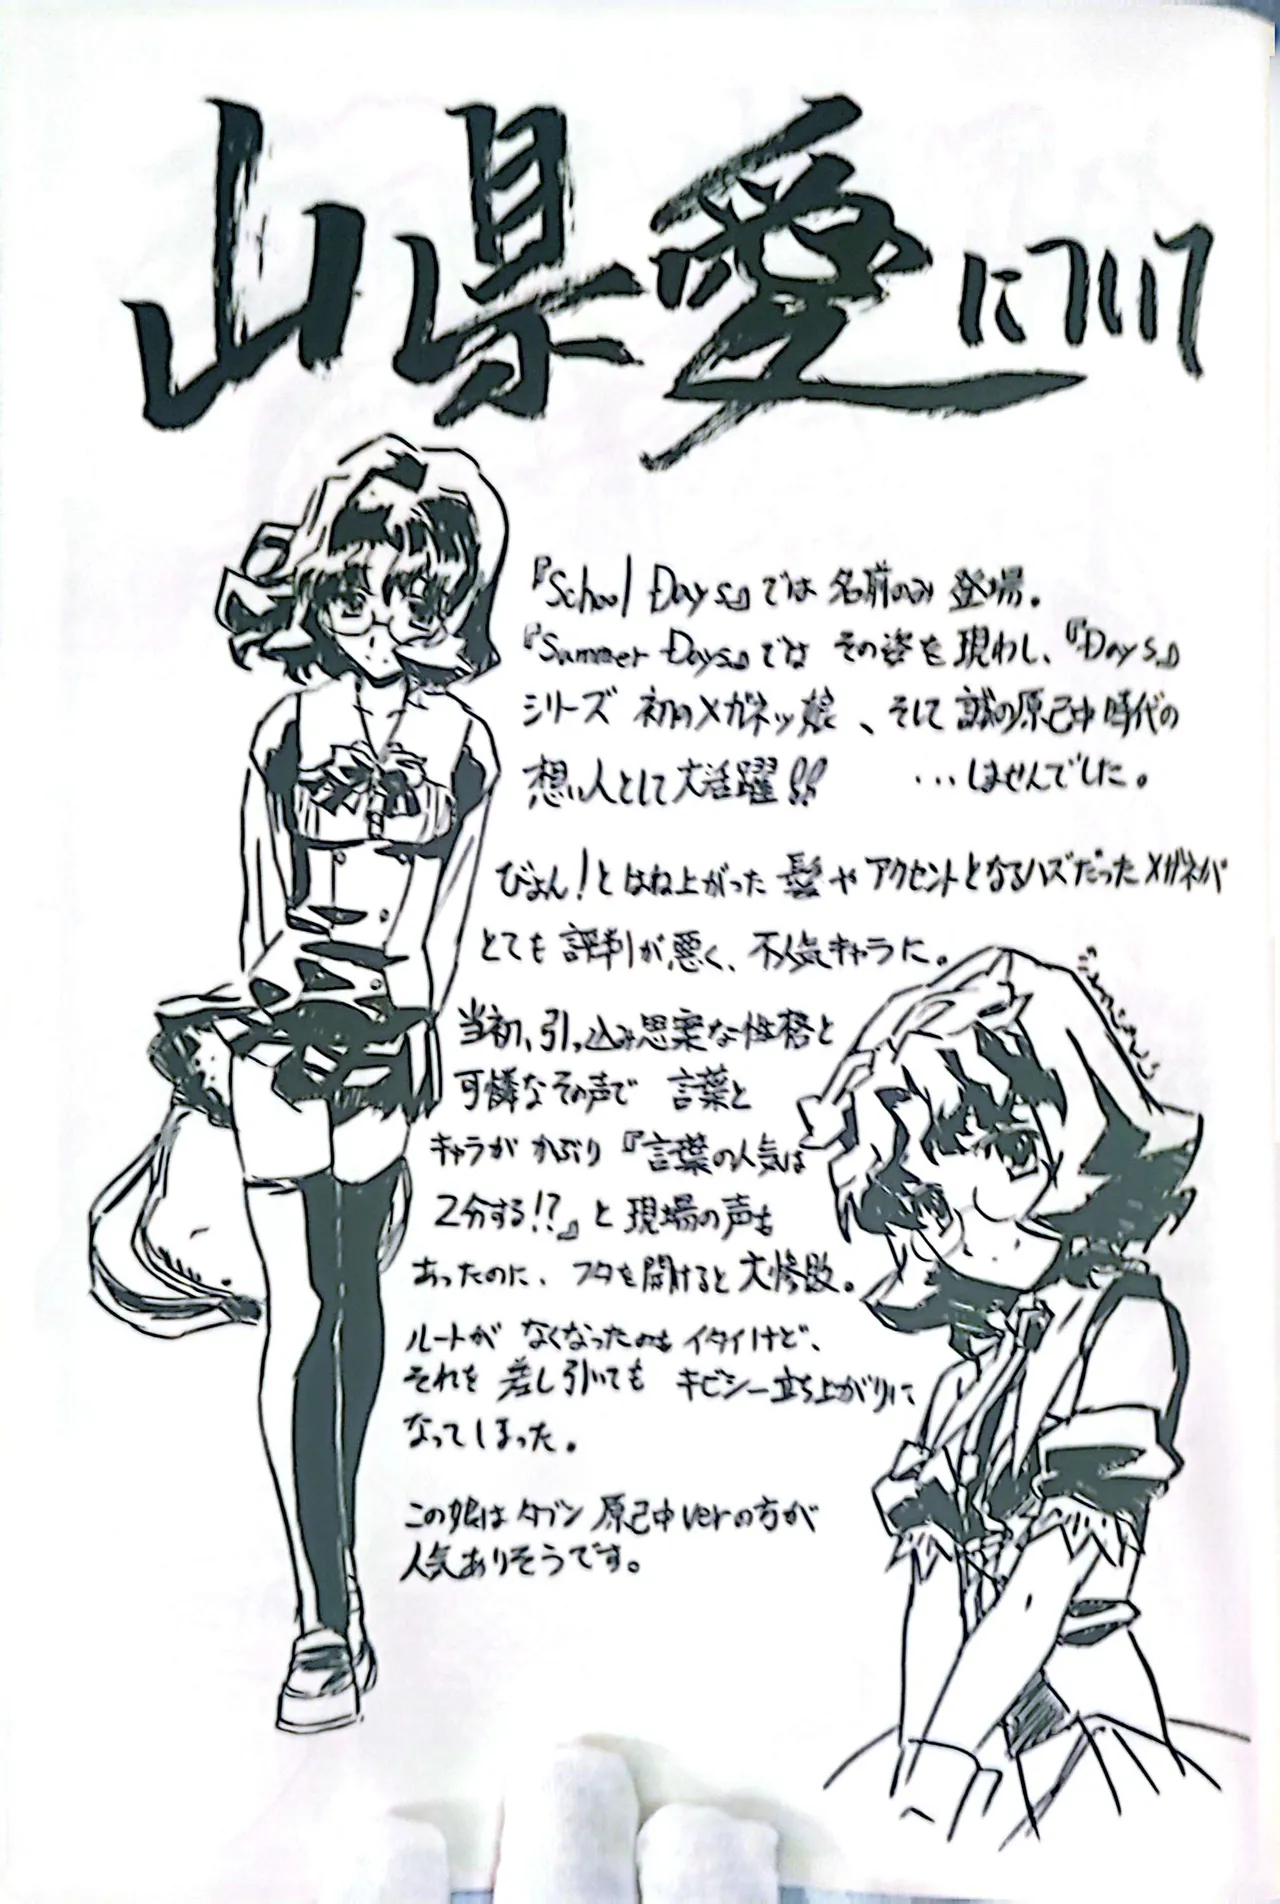 山県愛について
『School Days』では名前のみ登場。
『Summer Days』ではその姿を現わし、『Days』
シリーズ初のメガネッ娘、そして誠の原巳中時代の
想い人として大活躍!! ・・・しませんでした。
びょん!とはね上がった髪やアクセントとなるハズだったメガネが
とても評判が悪く、不人気キャラに。
当初、引っ込み思案な性格と
可憐なその声で 言葉と
キャラがかぶり『言葉の人気は
2分する!?』と現場の声も
あったのに、フタを開けると大惨敗。
ルートがなくなったのもイタイけど、
それを差し引いてもキビシー立ち上がりに
なってしまった。
この娘はタブン原巳中verの方が
人気ありそうです。